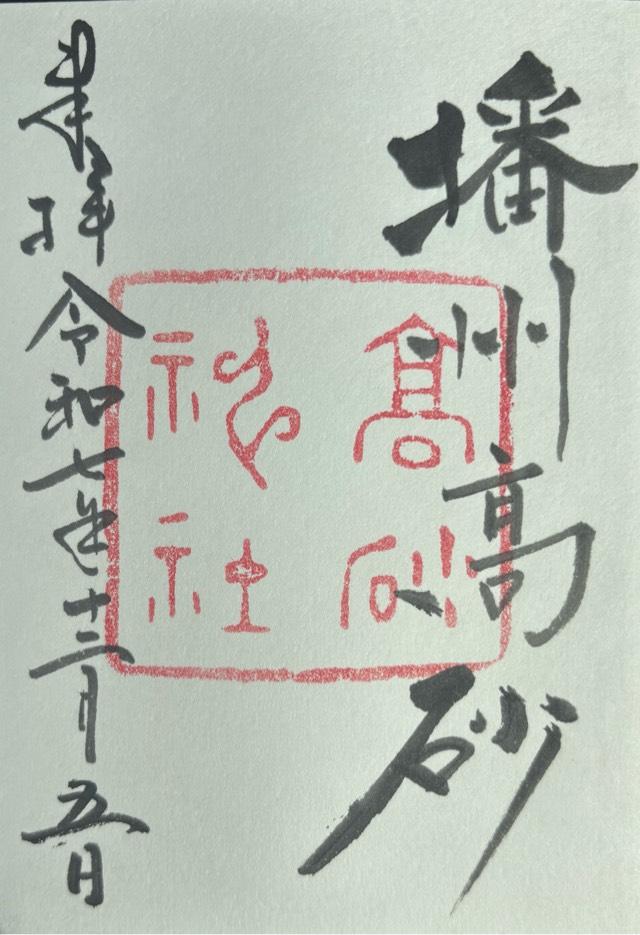 播州高砂
高砂
神社
奉拝
令和七年十二月五日